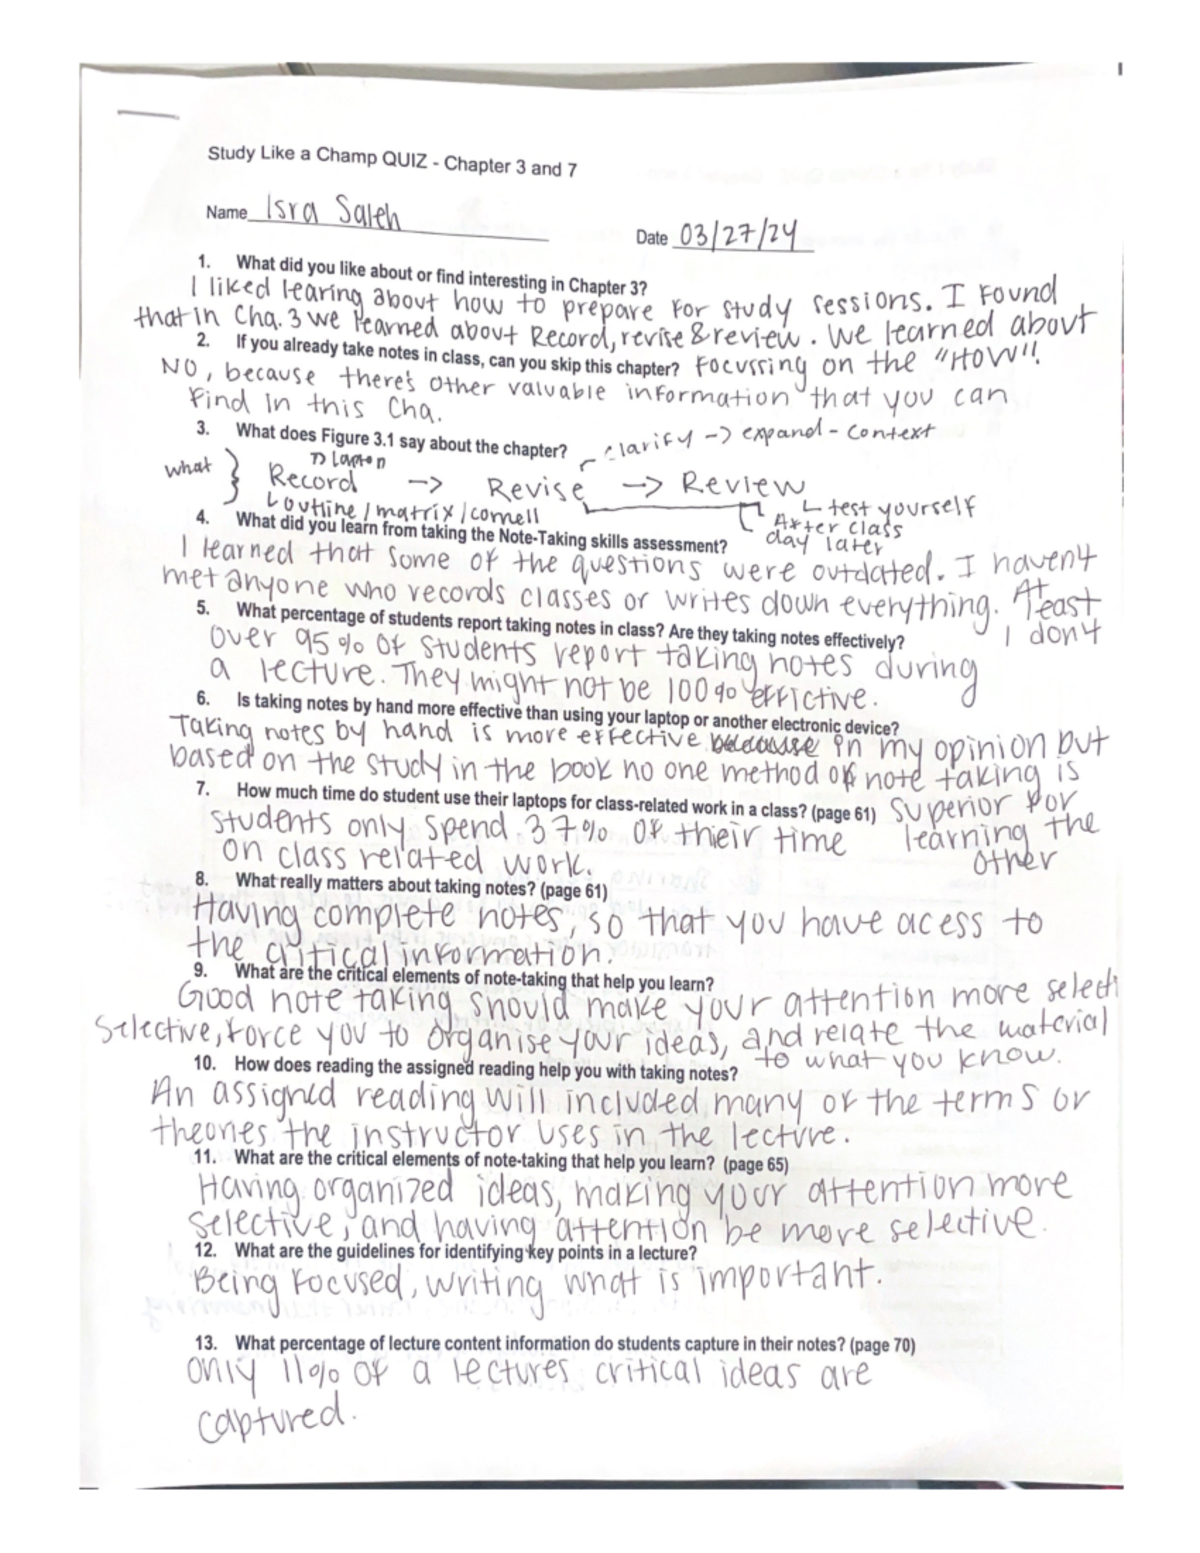 Study Like a Champ QUIZ - Chapter 3 and 7
Name Isra Saleh
Date 03/27/24
1. What did you like about or find interesting in Chapter 3?
I liked learing about how to prepare for study sessions. I found
that in Cha. 3 we learned about Record, revise & review. We learned about
2. If you already take notes in class, can you skip this chapter? Focussing on the "HOW"!
NO, because there's other valuable information that you can
find in this Cha.
3. What does Figure 3.1 say about the chapter?
clarify -> expand - context
what } Record -> Revise -> Review
↳ outline / matrix / cornell
↳ test yourself
After class
day later
4. What did you learn from taking the Note-Taking skills assessment?
I learned that some of the questions were outdated. I haven't
met anyone who records classes or writes down everything. At least
I don't
5. What percentage of students report taking notes in class? Are they taking notes effectively?
Over 95% of students report taking notes during
a lecture. They might not be 100% effictive.
6. Is taking notes by hand more effective than using your laptop or another electronic device?
Taking notes by hand is more effective in my opinion but
based on the study in the book no one method of note taking is
superior for
learning the
other
7. How much time do student use their laptops for class-related work in a class? (page 61)
Students only spend 37% of thieir time
on class related work.
8. What really matters about taking notes? (page 61)
Having complete notes, so that you have acess to
the critical information.
9. What are the critical elements of note-taking that help you learn?
Good note taking should make your attention more selecti
selective, force you to organise your ideas, and relate the material
to what you know.
10. How does reading the assigned reading help you with taking notes?
An assigned reading will included many of the terms or
theories the instructor uses in the lecture.
11. What are the critical elements of note-taking that help you learn? (page 65)
Having organized ideas, making your attention more
selective, and having attention be more selective.
12. What are the guidelines for identifying key points in a lecture?
Being focused, writing what is important.
13. What percentage of lecture content information do students capture in their notes? (page 70)
only 11% of a lectures critical ideas are
captured.